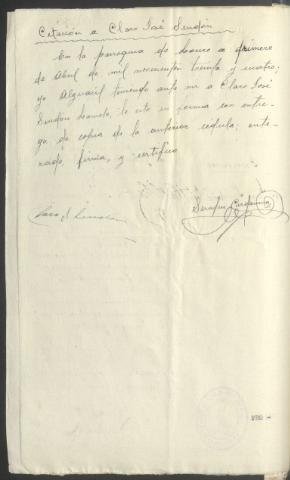 Citación a Claro José Sendón
En la parroquia de Louro a primero
de Abril de mil novecientos treinta y cuatro;
yo Alguacil teniendo ante mi a Claro José
Sendon Lamela, le cito en forma con entre-
ga de copia de la anterior cedula; ente-
rado, firma, y certifico
Claro J. Sendón
Serafin